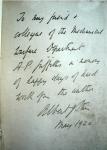 To my friend &
colleague of the Mechanical
Warfare Department
A P Griffiths a memory
of happy days of hard
work from the author
Albert G Stern
May 1922